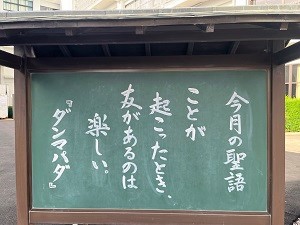 今月の聖語
ことが
起こったとき、
友があるのは
楽しい。
『ダンマパダ』